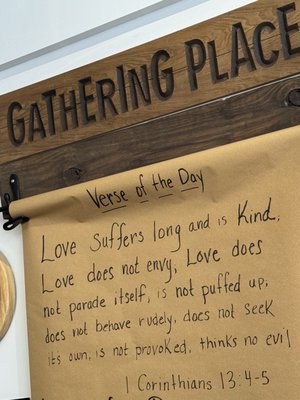 GATHERING PLACE
Verse of the Day
Love Suffers long and is Kind;
Love does not envy, Love does
not parade itself, is not puffed up;
does not behave rudely, does not seek
it's own, is not provoked, thinks no evil
1 Corinthians 13:4-5